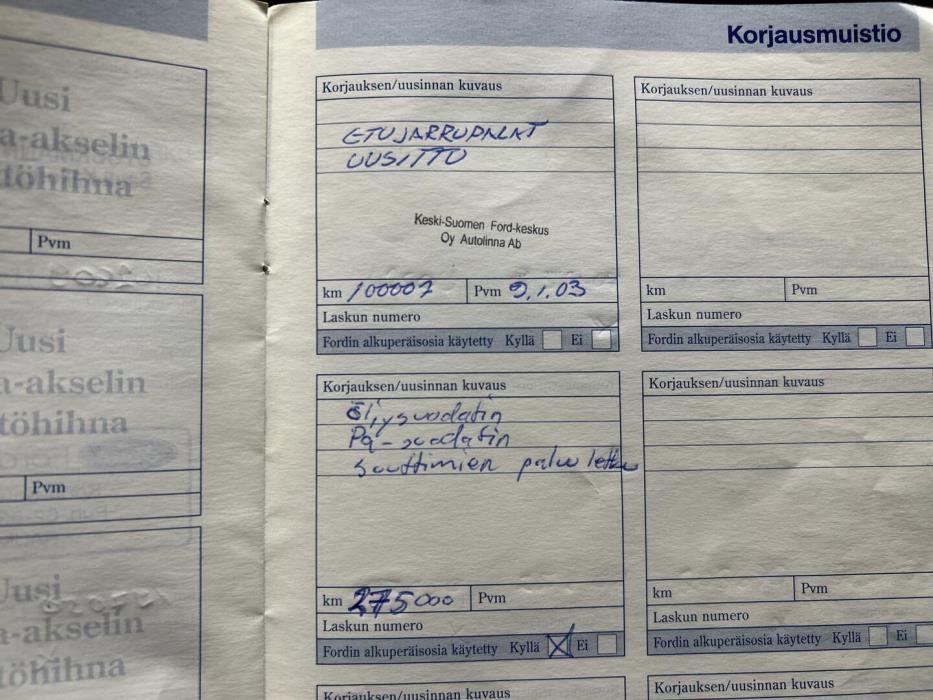 Uusi
a-akselin
töhihna
Pvm
Uusi
a-akselin
töhihna
Pvm
Uusi
a-akselin
töhihna
Korjausmuistio
Korjauksen/uusinnan kuvaus
ETUJARRUPALAT
UUSITTU
Keski-Suomen Ford-keskus
Oy Autolinna Ab
km 100007 Pvm 9.1.03
Laskun numero
Fordin alkuperäisosia käytetty Kyllä Ei
Korjauksen/uusinnan kuvaus
km Pvm
Laskun numero
Fordin alkuperäisosia käytetty Kyllä Ei
Korjauksen/uusinnan kuvaus
Öljysuodatin
Pa-suodatin
suuttimien paluu letku
km 275000 Pvm
Laskun numero
Fordin alkuperäisosia käytetty Kyllä Ei
Korjauksen/uusinnan kuvaus
km Pvm
Laskun numero
Fordin alkuperäisosia käytetty Kyllä Ei
Korjauksen/uusinnan kuvaus
Korjauksen/uusinnan kuvaus